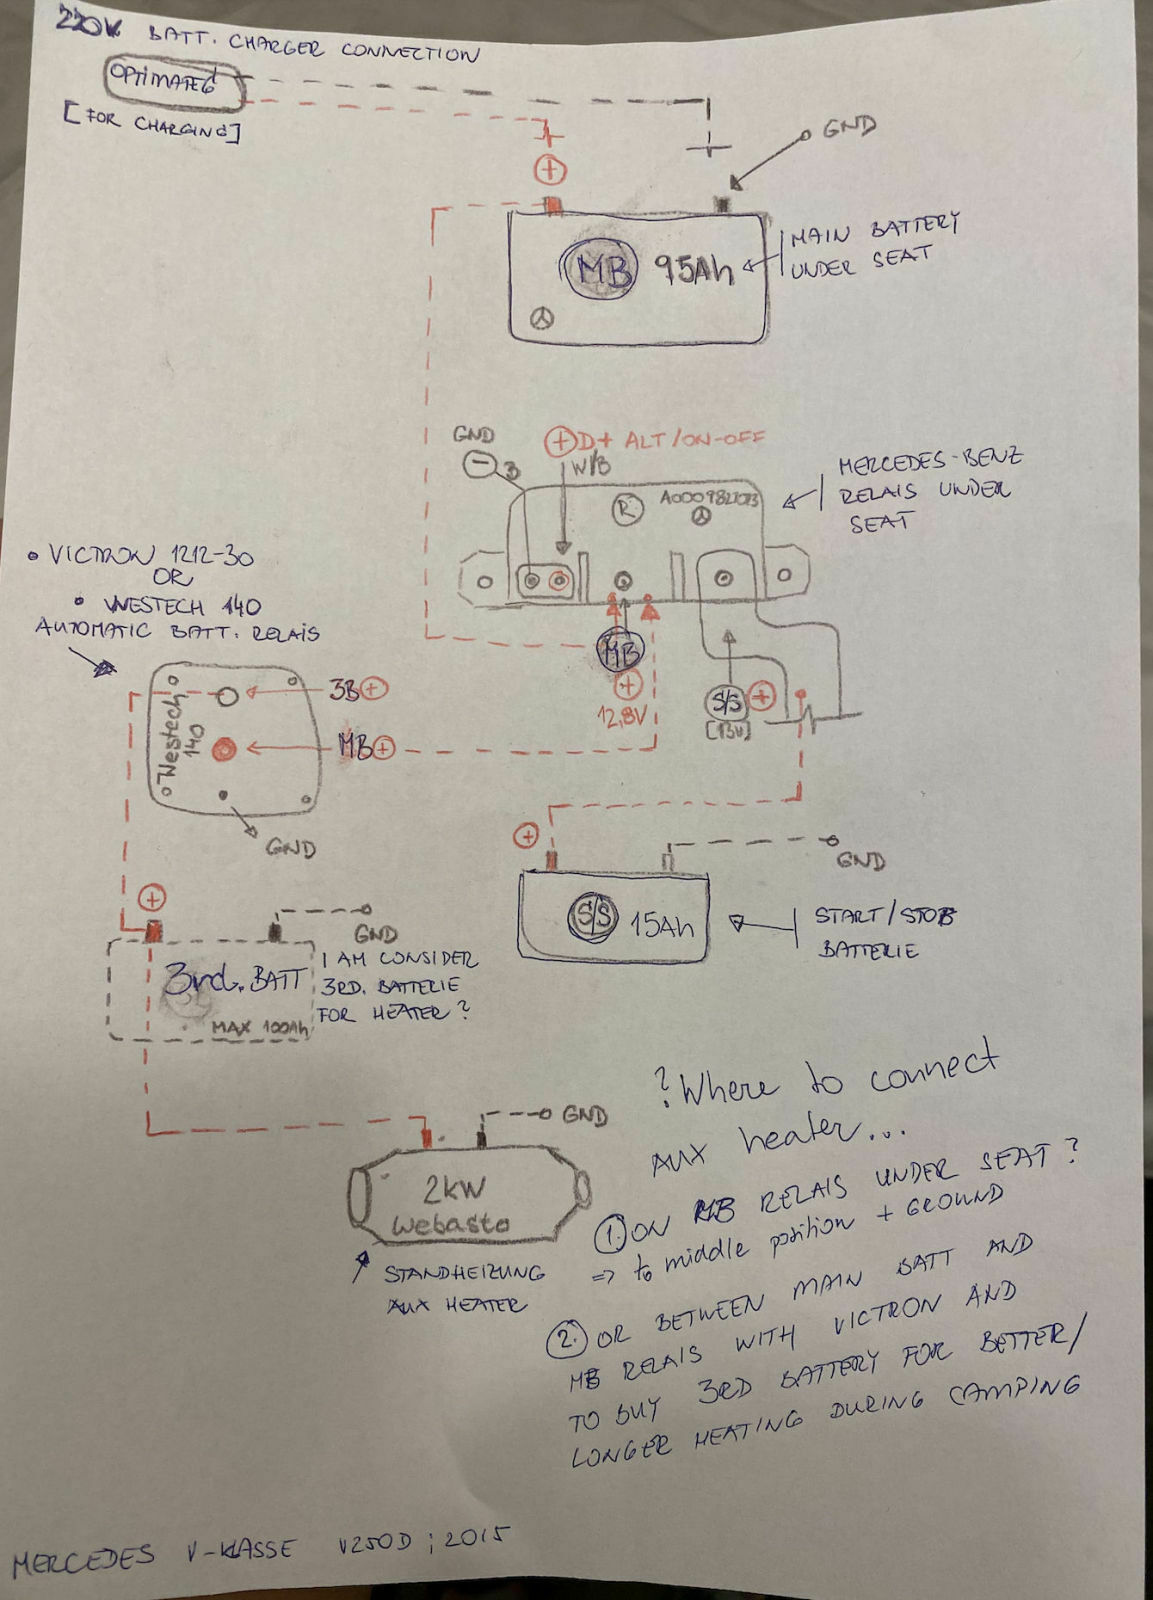 220V BATT. CHARGER CONNECTION
OPTIMATE6
[FOR CHARGING]
GND
+
MB 95Ah
MAIN BATTERY
UNDER SEAT
GND
+ D+ ALT/ON-OFF
- 3
W/B
R
MERCEDES-BENZ
RELAIS UNDER
SEAT
• VICTRON 1212-30
OR
• WESTECH 140
AUTOMATIC BATT. RELAIS
MB
+
12,8V
S/S +
[13V]
3B+
MB+
Westech
140
GND
+
GND
+
GND
S/S 15Ah
START/STOP
BATTERIE
3rd. BATT
MAX 100Ah
I AM CONSIDER
3RD. BATTERIE
FOR HEATER?
GND
2kW
Webasto
STANDHEIZUNG
AUX HEATER
? Where to connect
AUX heater...
1. ON MB RELAIS UNDER SEAT?
=> to middle position + GROUND
2. OR BETWEEN MAIN BATT AND
MB RELAIS WITH VICTRON AND
TO BUY 3RD BATTERY FOR BETTER/
LONGER HEATING DURING CAMPING
MERCEDES V-KLASSE V250D; 2015